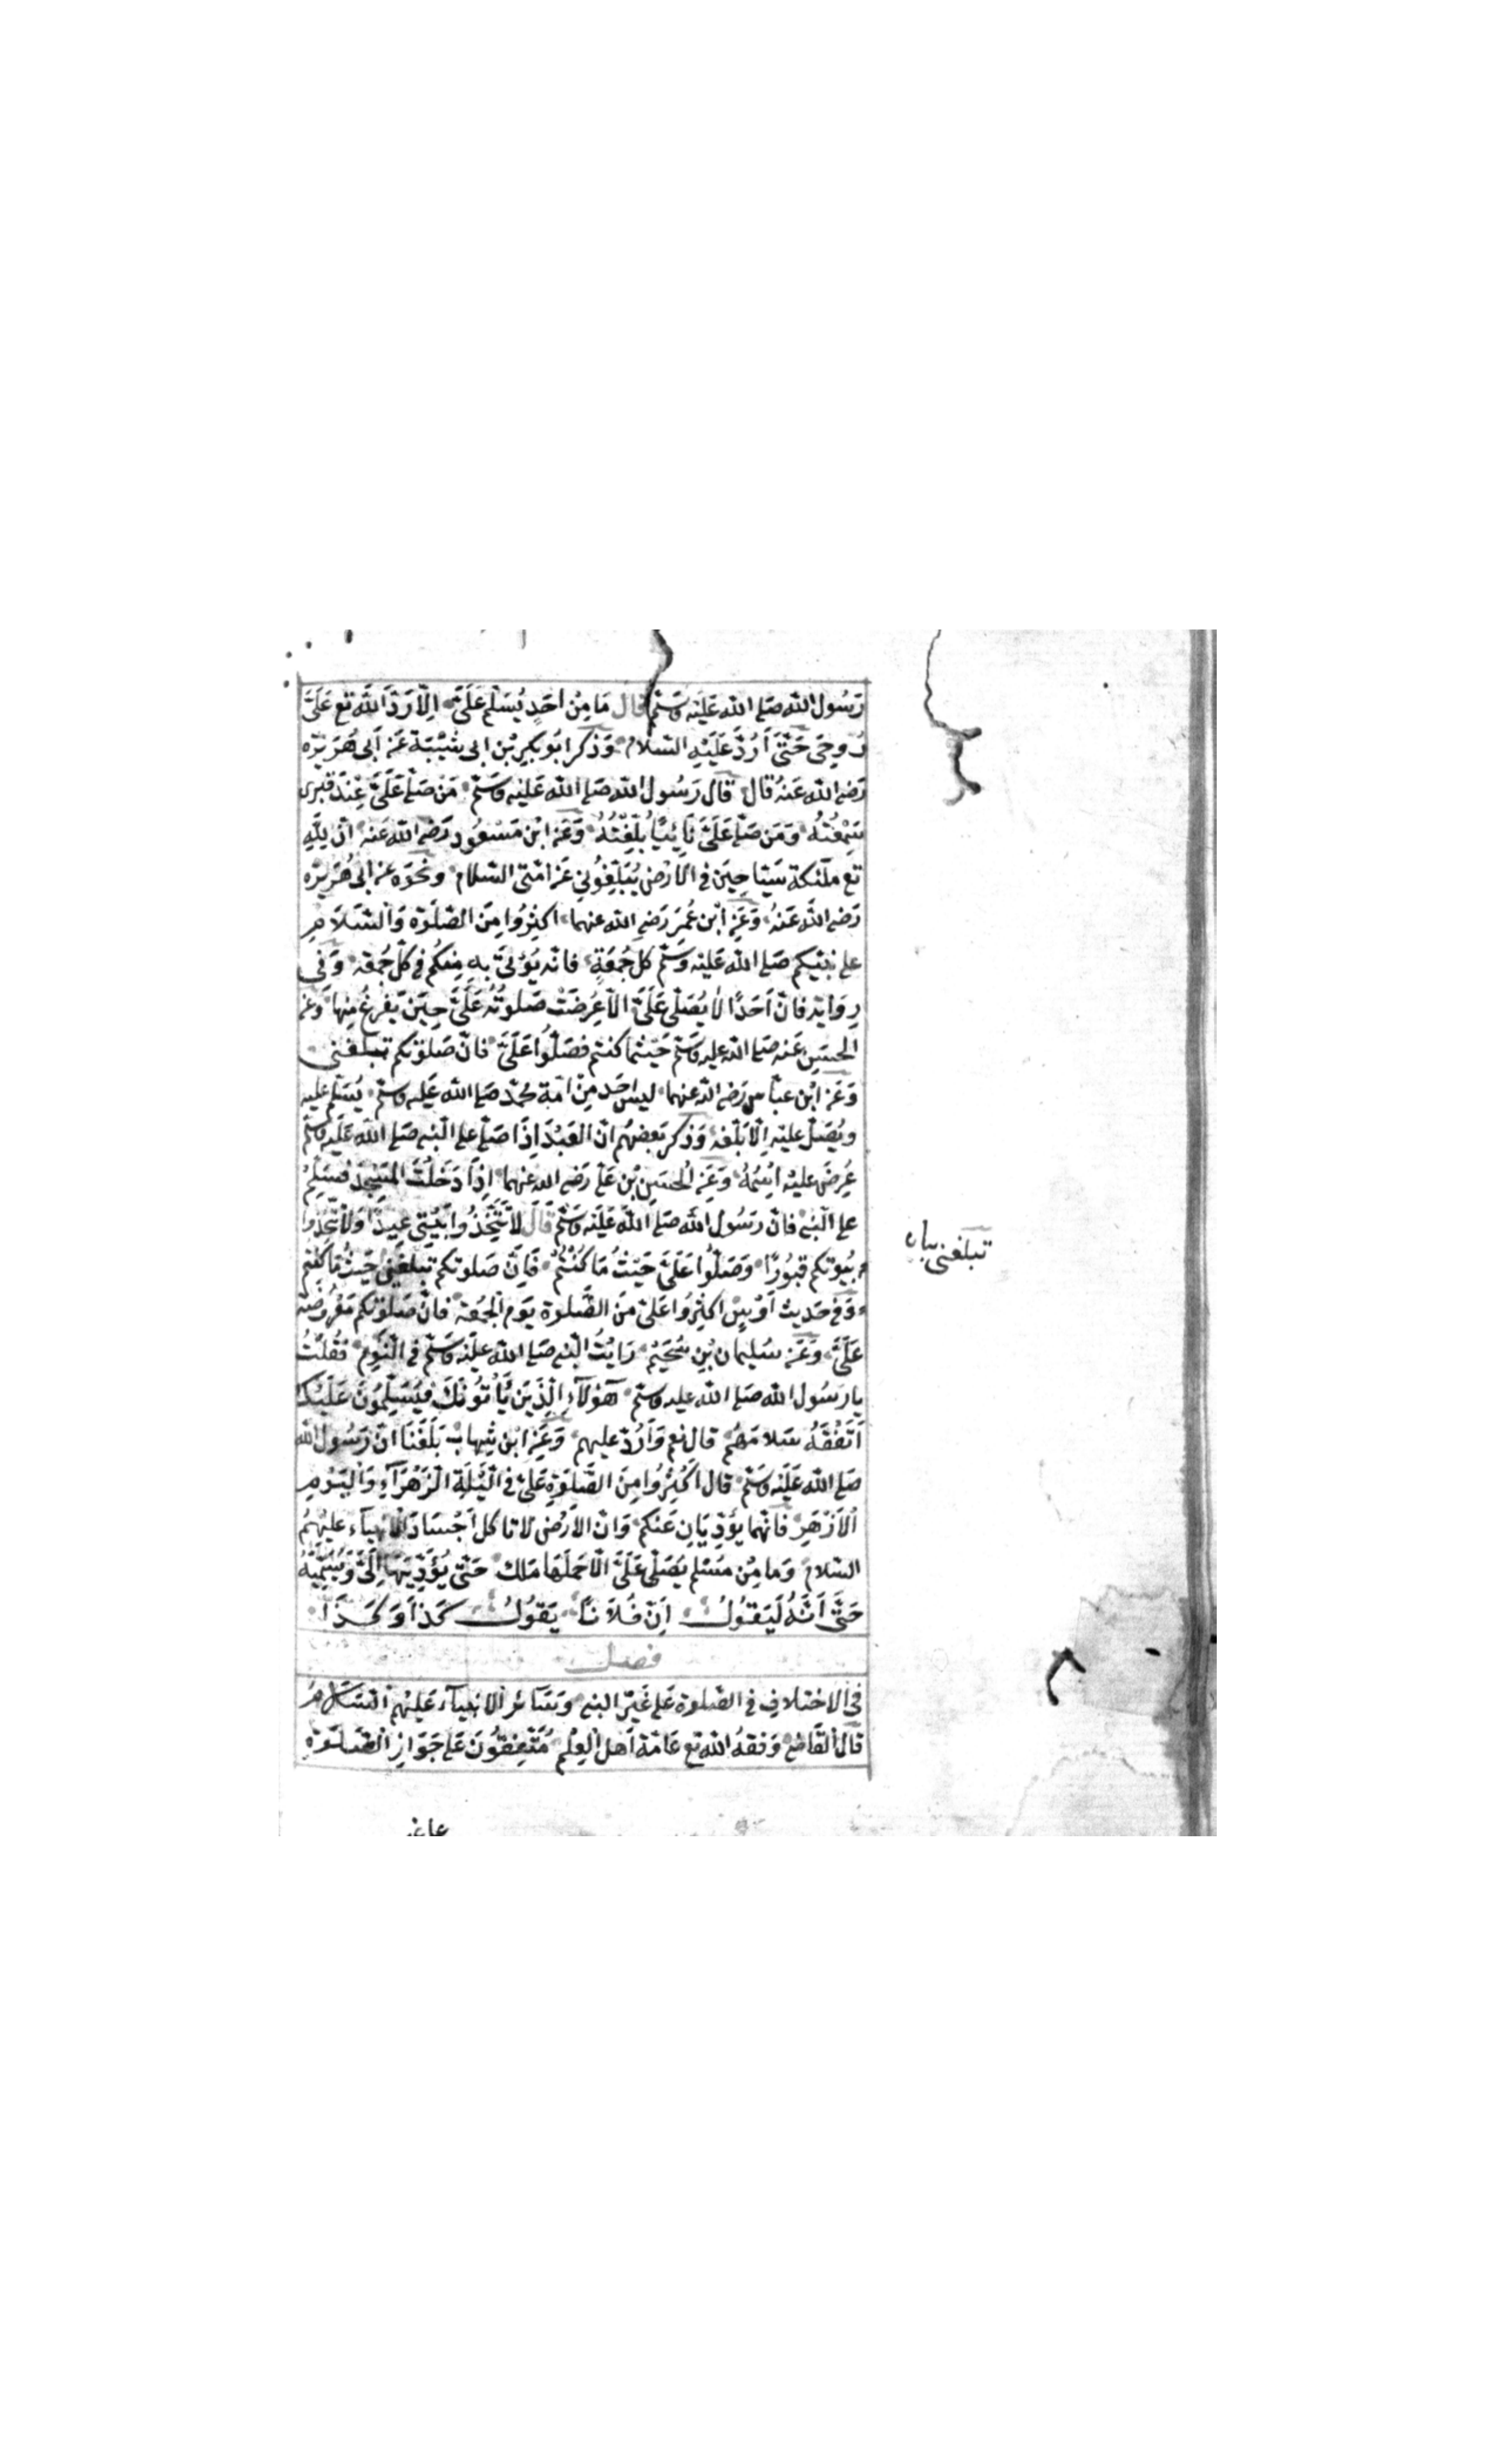 رَسُول الله صَلى الله عَلَيْه وَسَلّم قال مَا مِنْ اَحَدٍ يُسَلّم عَلَىَّ اِلّا رَدَّ اللّٰه تع عَلَىَّ
رُوحِى حَتّٰى اَرُدَّ عَلَيْهِ السّلَام وَذكر ابُو بكرِ بْن ابى شَيْبَة عَن اَبى هُرَيْرَه
رَضى الله عَنهُ قال قال رَسُول الله صَلى الله عَليْه وَسَلّم مَن صَلّى عَلَىَّ عِنْدَ قبْرى
سَمِعْتُهُ وَمَن صَلّى عَلَىَّ نَائِيًا بُلّغْتُهُ وَعَن ابْن مَسْعُودٍ رَضى الله عَنه انّ لِلّٰهِ
تع ملئكة سَيّاحِينَ فى الارْضِ يُبَلّغُونِي عَن امّتى السّلام ونحْوَه عن ابى هُرَيْرَه
رَضى الله عَنهُ وَعَنِ ابْن عُمَرَ رَضى الله عنهما اكثِرُوا مِنَ الصّلَوٰة وَالسّلَامِ
على نبيّكم صَلى الله عَليْه وَسَلّم كل جُمعَةٍ فانّه يُؤتىٰ به مِنكُم فى كلّ جُمعَة وَفى
رِوَايَة فانّ اَحَدًا لا يُصَلّى عَلَىَّ الّا عُرِضَتْ صَلوتُهُ عَلَىَّ حِينَ يَفرغُ مِنهَا وَعَن
الحسَنِ عَنه صَلى الله عليه وَسَلّم حَيْثما كنتم فصَلّوُا عَلَىَّ فانّ صَلوتكم تبلغنى
وَعَن ابْن عبّاس رَضى الله عنهما ليسَ اَحَد مِنْ امّة محمّد صَلى الله عَليْه وسلّم يُسَلّم عليه
ويُصَلّى عليْه اِلّا بَلّغه وَذكر بَعضهُم انّ العَبْدَ اِذَا صَلّى على النبى صَلى الله عَلَيْه وَسَلّم
عُرِضَ عليْه اسْمُهُ وَعَنِ الحسَنِ بْن عَلى رَضى الله عنهما اِذَا دَخَلْتَ المَسْجِدَ فسَلّمْ
على النّبى فانّ رَسُول الله صَلى اللّٰه عَلَيْه وَسَلّم قَالَ لَا تَتّخِذُوا بَيْتى عِيدًا وَلَا تَتّخِذُوا
بُيُوتكم قبُورًا وَصَلّوُا عَلَىَّ حَيْثُ مَا كُنْتُمْ فَاِنّ صَلوتكم تبلغنِى حَيْثُ مَا كنتم
وَفى حَديث اَوْسٍ اكثِرُوا عَلىّ مَنَ الصّلوة يَوَم الجُمعَة فانّ صَلوتكم مَعْرُوضَة
عَلَىَّ وَعَن سُليمان بْنِ سُحَيْمٍ رَايْتُ النبى صَلى الله عليْه وَسَلّم فى النّوْمِ فقُلْتُ
يا رَسُول الله صَلى الله عليه وسلّم هَؤلَآءِ الّذَينَ يَأتُونَكَ فيُسَلّمُونَ عَلَيْكَ
اَتَفْقَهُ سَلامَهُم قال نعم وَاَرُدّ عليهم وَعَنِ ابْن شِهابٍ بَلَغَنَا انّ رَسُول الله
صَلى الله عَلَيْه وَسَلّم قال اَكْثِرُوا مِنَ الصَّلَوٰةِ عَلىّ فى اللّيْلَةِ الزّهْرَآءِ وَاليَوْمِ
الاَزْهَرِ فانّهما يؤدّيَانِ عَنكم وَانّ الاَرْضَ لا تاكل اَجْسَادَ الانبيآء عليْهمُ
السّلام وَما مِنْ مسْلم يصَلّى عَلَىَّ الّا حَملَهَا مَلك حَتّى يُؤَدِّيَهَا اِلَىَّ وَيُسَمّيهُ
حَتّى اَنّهُ لَيَقوُلُ اِنّ فُلَانًا يَقوُلُ كذَا وَكذَا
فصل
فى الاختلافِ فى الصّلوة عَلى غَيْر النبى وَسَائر الانبيآء عَليْهمُ السّلام
قال القَاضى وَفقهُ الله تع عَامّة اَهل العِلْمِ مُتّفِقوُنَ عَلى جَوَازِ الصّلوٰة
تبلغنى بيان
على غير